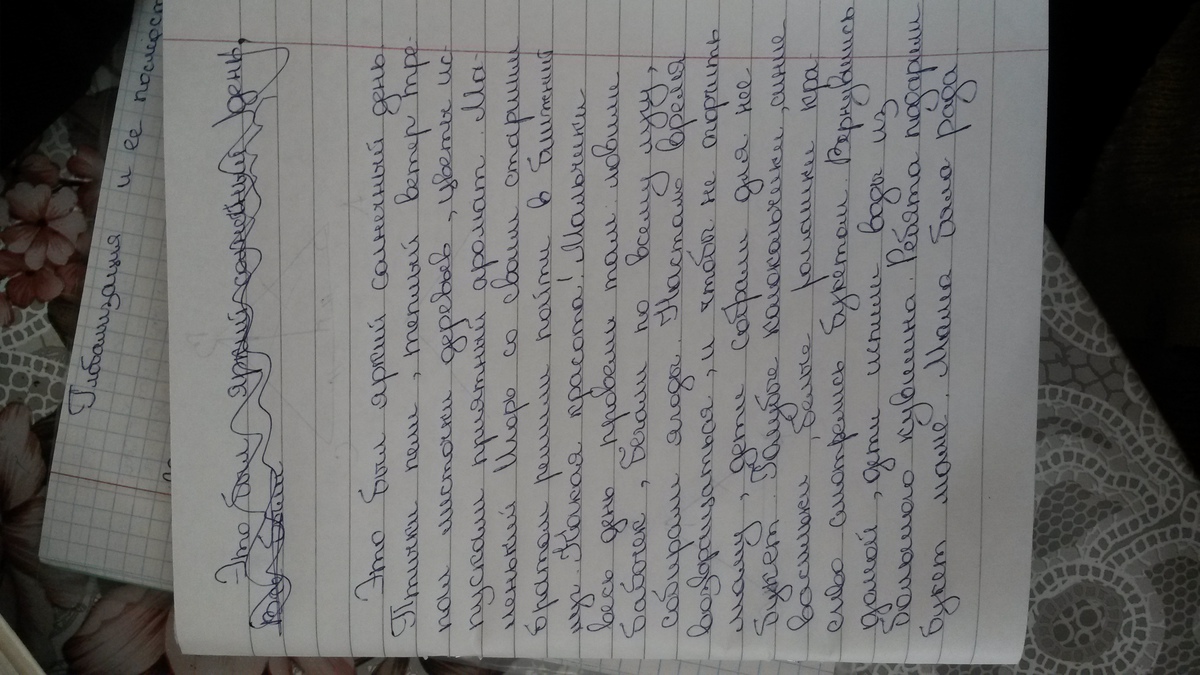 Глобализация и ее последст
Это был яркий солнечный день.
Это был яркий солнечный день.
Птички пели, теплый ветер тре-
пал листочки деревьев, цветы ис-
пускали приятный аромат. Ма-
ленький Игорь со своим старшим
братом решили пойти в ближний
луг. Какая красота! Мальчики
весь день провели там: ловили
бабочек, бегали по всему лугу,
собирали ягоды. Настало время
возвращаться, и чтобы не огорчить
маму, дети собрали для нее
букет. Голубые колокольчики, синие
васильки, белые ромашки кра-
сиво смотрелись букетом. Вернувшись
домой, дети испили воды из
большого кувшина. Ребята подарили
букет маме. Мама была рада